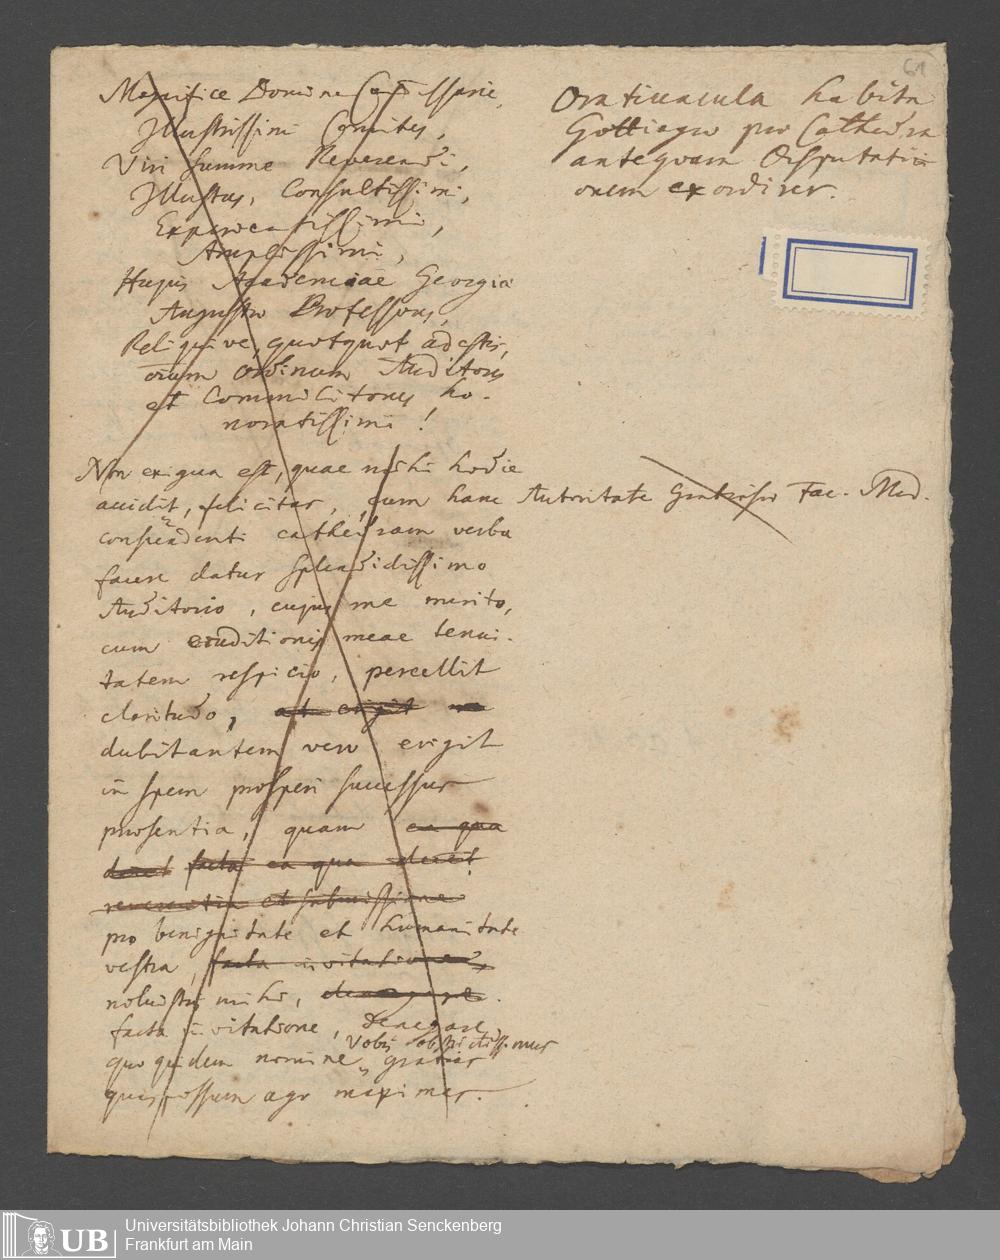 61
Magnifice Domine Commissarie,
Illustrissimi Comites,
Viri Summe Reverendi,
Illustres, Consultissimi,
Experientissimi,
Amplissimi,
Hujus Academiae Georgiae
Augustae Professores,
Reliquive, quotquot adestis,
omnium ordinum Auditores
et Commilitones ho-
noratissimi!
Non exigua est, quae mihi hodie
accidit, felicitas, cum hanc
conscendenti cathedram verba
facere datur splendidissimo
Auditorio, cujus me merito,
cum eruditionis meae tenui-
tatem respicio, percellit
claritudo, at erigit
dubitantem vero erigit
in spem prosperi successus
praesentia, quam ea qua
decet facta ea qua decet
reverentia et submissione
pro benignitate et humanitate
vestra, facta invitatione,
noluistis mihi, denegare.
facta invitatione, denegare,
quo quidem nomine Vobis obstrictissimus gratias
quas possum ago maximas.
Oratiuncula habita
Gottingae pro Cathedra
antequam Disputati-
onem exordirer.
Autoritate Gratiosae Fac. Med.
UB
Universitätsbibliothek Johann Christian Senckenberg
Frankfurt am Main